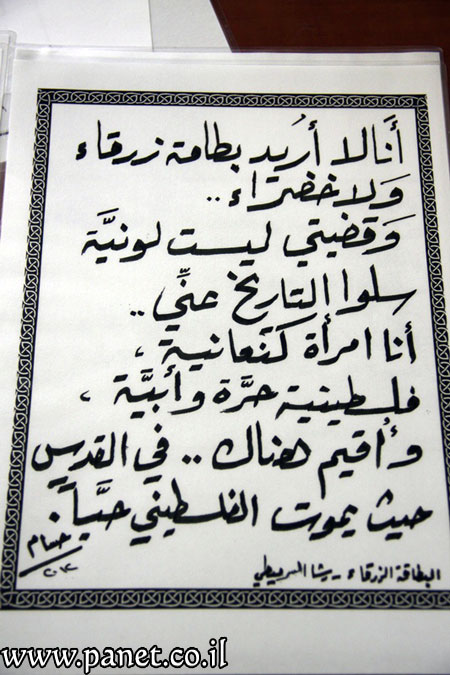 أَنا لا أُريد بطاقة زرقاء
وَلا خضرَاء..
وَقضيتي ليست لونيَّة
سلوا التاريخ عنِّي..
أنا امرأة كنَعانية،
فلسطينية حرَّة وأبيَّة،
وأُقيم هناك.. في القدس
حيث يموت الفلسطيني حبَّاً.
حسام
البطاقة الزرقاء - رشا السربيطي
www.panet.co.il